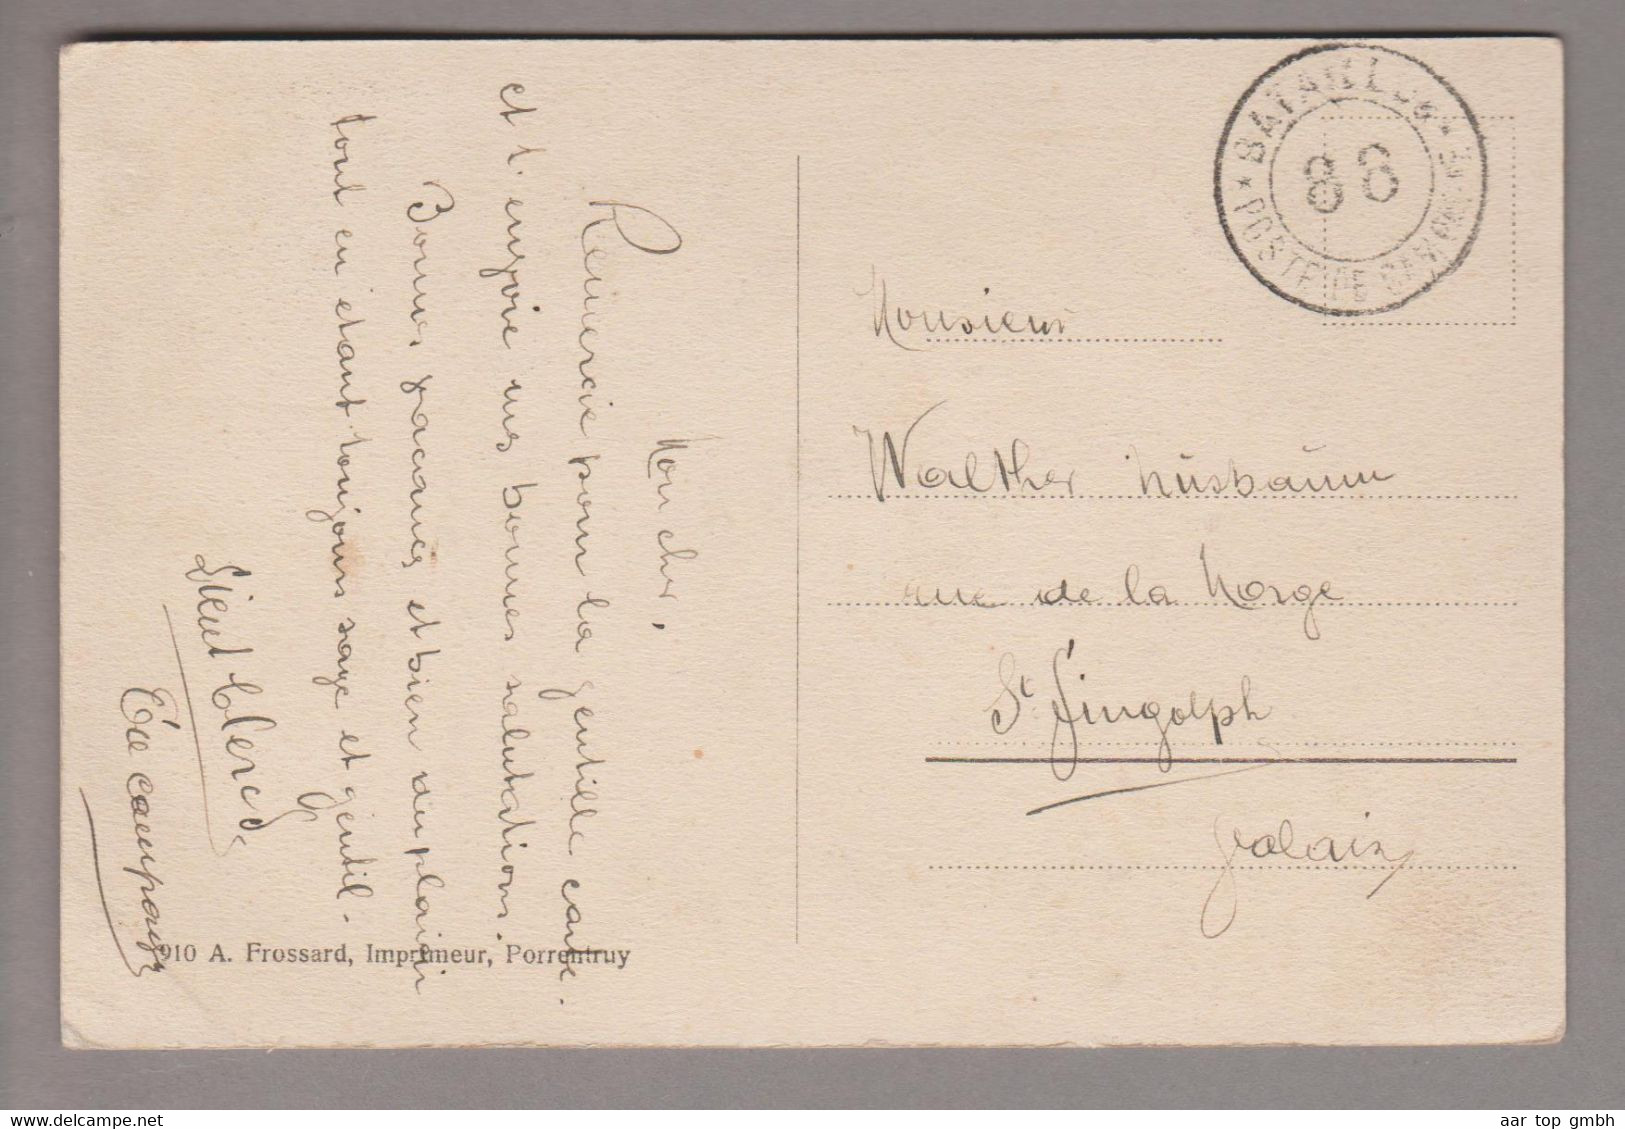 Mon cher,
Remercie pour la gentille carte.
et t'envoie mes bonnes salutations
Bonnes vacances et bien du plaisir
tout en étant toujours sage et gentil.
Lieut Clerc
En campagne
* BATAILLON *
86
POSTE DE CAMPAGNE
Monsieur
Walther Nusbaum
rue de la Morge
St. Gingolph
Valais
910 A. Frossard, Imprimeur, Porrentruy
aar top gmbh